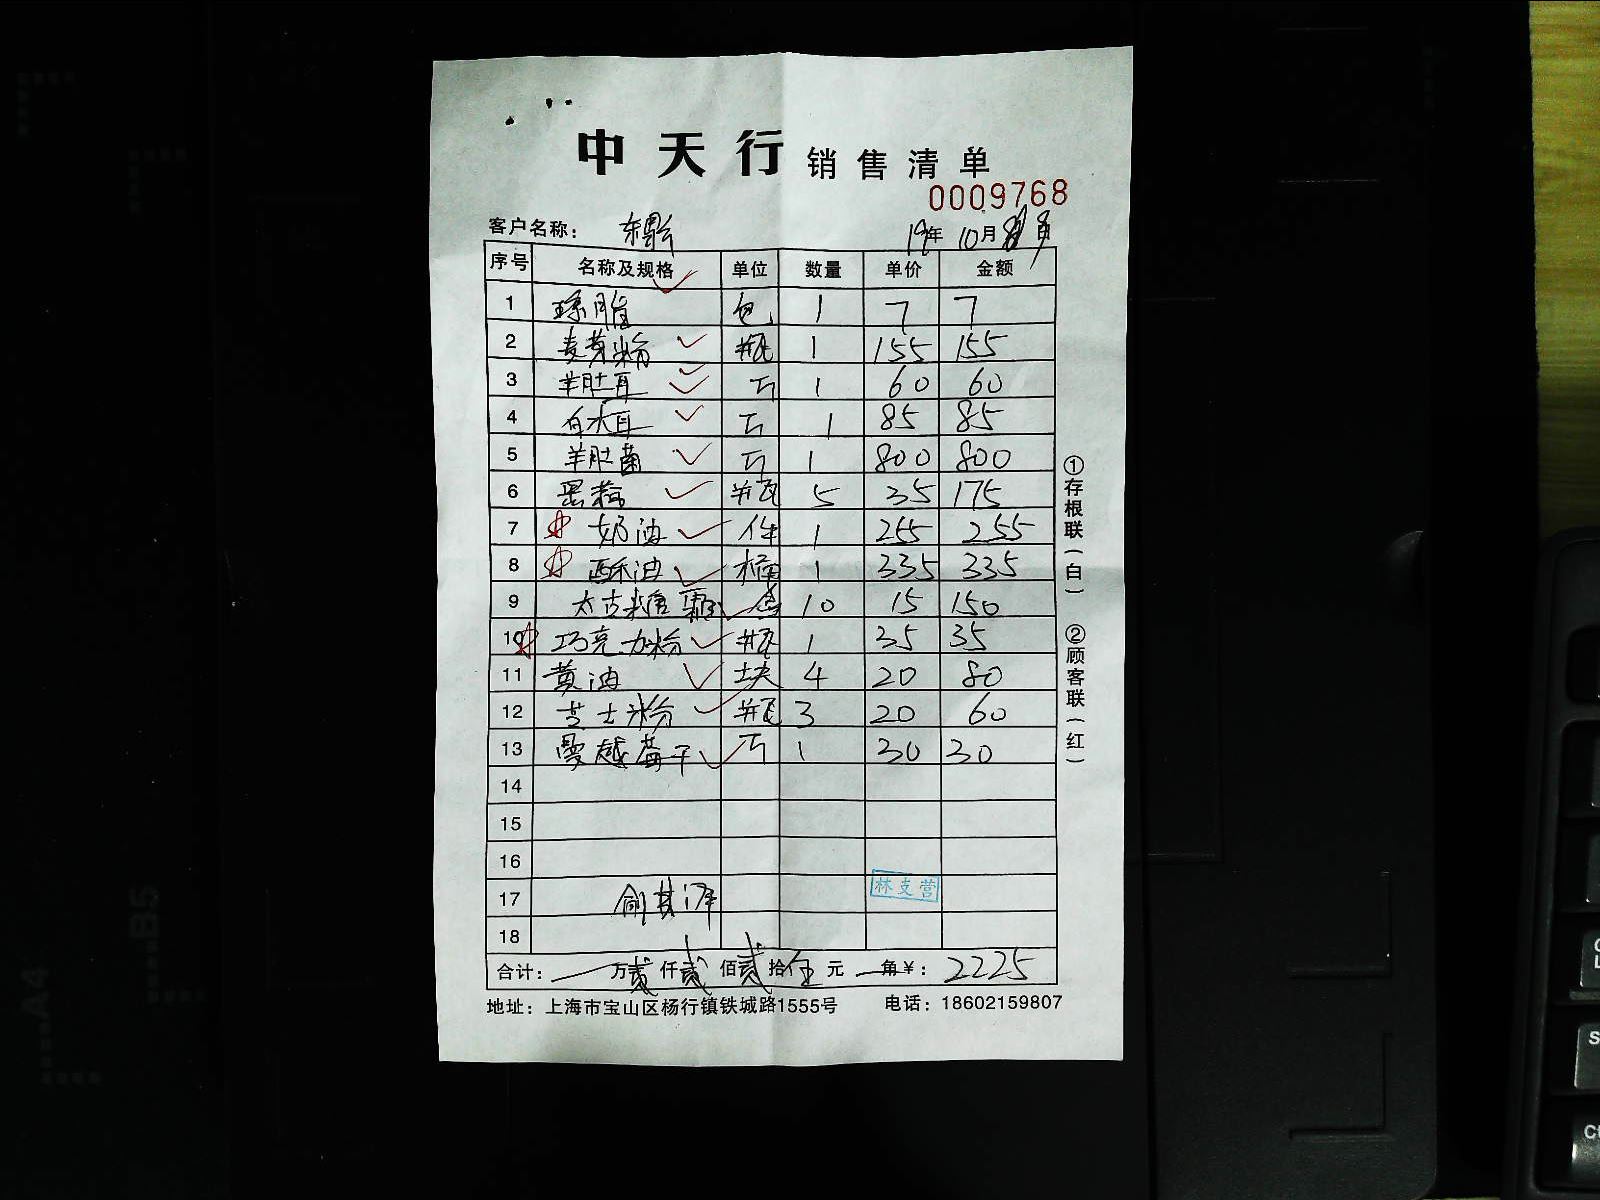 中天行 销售清单
0009768
客户名称：
19年 10月
序号 名称及规格 单位 数量 单价 金额
1 琼脂 包 1 7 7
2 麦芽粉 瓶 1 155 155
3 羊肚耳 斤 1 60 60
4 白木耳 斤 1 85 85
5 羊肚菌 斤 1 800 800
6 瓶 5 35 175
7 奶油 件 1 255 255
8 酥油 桶 1 335 335
9 太古糖霜 盒 10 15 150
10 巧克力粉 瓶 1 35 35
11 黄油 块 4 20 80
12 芝士粉 瓶 3 20 60
13 曼越莓干 斤 1 30 30
14
15
16
17 林支营
18
合计： 万贰仟贰佰贰拾伍元 角￥：2225
地址：上海市宝山区杨行镇铁城路1555号 电话：18602159807
①存根联（白） ②顾客联（红）
A4
B5